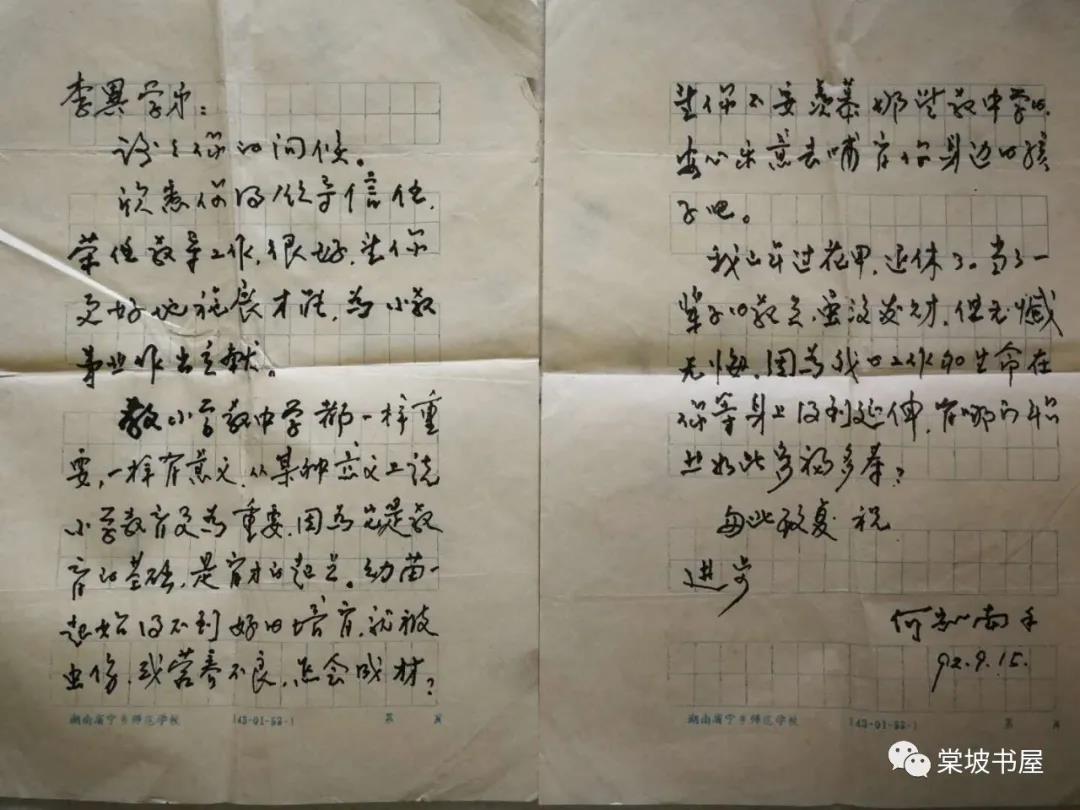 李異学弟：
谢谢你的问候。
欣悉你得领导信任，
荣任教导工作，很好，望你
更好地施展才能，为小教
事业作出贡献。
教小学教中学都一样重
要，一样有意义，从某种意义上说
小学教育更为重要，因为它是教
育的基础，是育才的起点。幼苗一
起始得不到好的培育，就被
虫伤，或营养不良，怎会成材？
湖南省宁乡师范学校 (43-01-53-) 第 页
望你不要羡慕那些教中学的，
安心乐意去哺育你身边的孩
子吧。
我已年过花甲，退休了。当了一
辈子的教员，虽没发财，但无憾
无悔，因为我的工作和生命在
你等身上得到延伸，有哪的职
业如此多福多寿？
匆此敬复 祝
进步
何 南手
92.9.15.
湖南省宁乡师范学校 (43-01-53-) 第 页
棠坡书屋